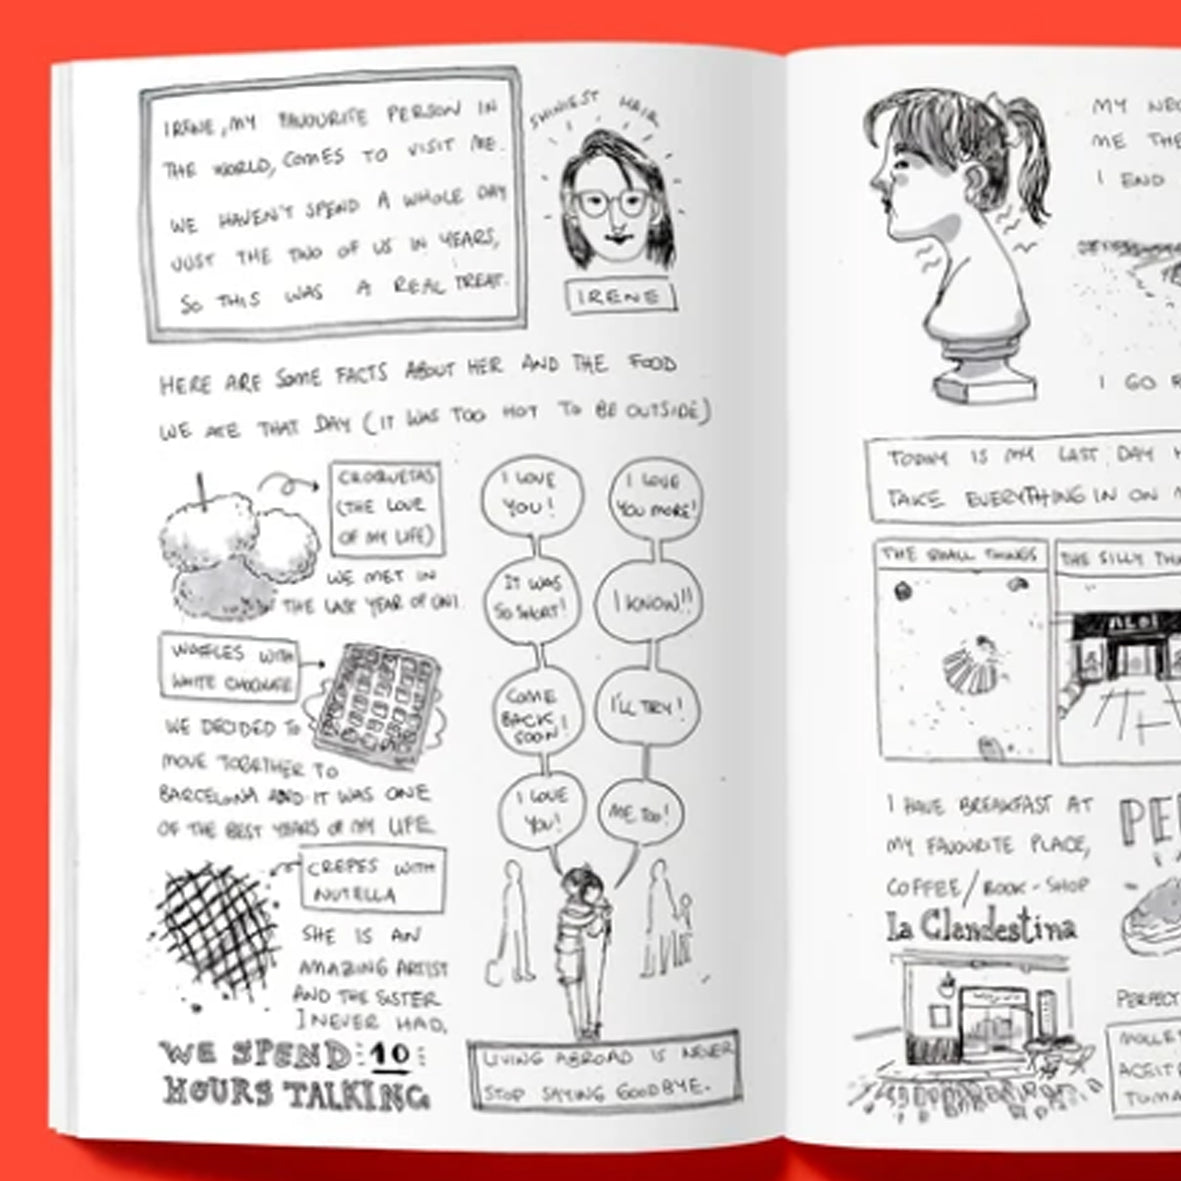 IRENE, MY FAVOURITE PERSON IN
THE WORLD, COMES TO VISIT ME.
WE HAVEN'T SPEND A WHOLE DAY
JUST THE TWO OF US IN YEARS,
SO THIS WAS A REAL TREAT.
SHINIEST HAIR
IRENE
HERE ARE SOME FACTS ABOUT HER AND THE FOOD
WE ATE THAT DAY (IT WAS TOO HOT TO BE OUTSIDE)
CROQUETAS
(THE LOVE
OF MY LIFE)
WE MET IN
THE LAST YEAR OF UNI.
WAFFLES WITH
WHITE CHOCOLATE
WE DECIDED TO
MOVE TOGETHER TO
BARCELONA AND IT WAS ONE
OF THE BEST YEARS OF MY LIFE
CREPES WITH
NUTELLA
SHE IS AN
AMAZING ARTIST
AND THE SISTER
I NEVER HAD.
WE SPEND 10
HOURS TALKING
I LOVE
YOU!
I LOVE
YOU MORE!
IT WAS
SO SHORT!
I KNOW!!
COME
BACK
SOON!
I'LL TRY!
I LOVE
YOU!
ME TOO!
LIVING ABROAD IS NEVER
STOP SAYING GOODBYE.
MY
ME THE
I END
I GO
TODAY IS MY LAST DAY
TAKE EVERYTHING IN ON
THE SMALL THINGS
THE SILLY
ALDI
I HAVE BREAKFAST AT
MY FAVOURITE PLACE,
COFFEE/BOOK-SHOP
la Clandestina
PERFECT